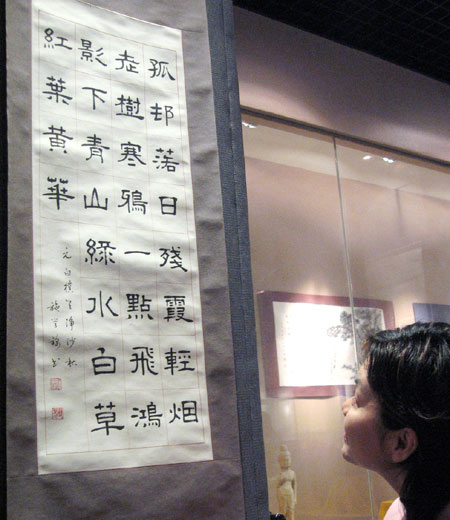 孤邨落日殘霞輕烟
老樹寒鴉一點飛鴻
影下青山綠水白草
紅葉黃華
元白樸天淨沙秋